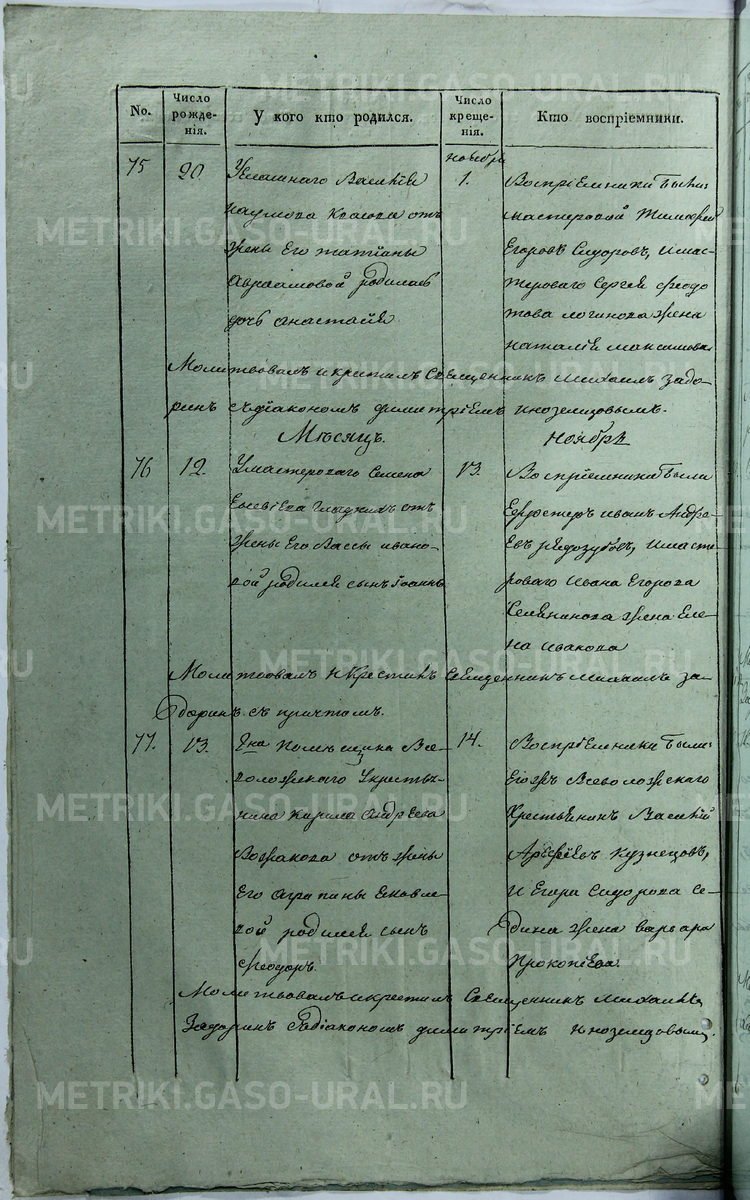 No.
Число рожде- нія.
У кого кто родился.
Число креще- нія.
Кто воспріемники.
75
20.
Василія
Наумова отъ
жены Его Татіаны
Авраамовой родилась
дочь Анастасія
ноября
1.
Воспріемники были
мастеровой Тимофей
Егоровъ Сидоровъ, и мас-
тероваго Сергея Феодо
това Логинова жена
Наталія Максимова
Молитвовалъ и крестилъ Священникъ Михаилъ Задо-
ринъ с діакономъ Димитріемъ Иноземцовымъ.
Мѣсяцъ.
Ноябрь
76
12.
У мастероваго Семена
Евсевіева отъ
жены Его Вассы Ивано-
вой родился сынъ Іоаннъ
13.
Воспріемники были
Иванъ Андре-
евъ и масте-
роваго Ивана Егорова
Селянинова жена Еле-
на Ивановa
Молитвовалъ и Крестилъ Священникъ Михаилъ За-
доринъ съ причтомъ.
77.
13.
Гна помещика Все-
воложскаго у крестья-
нина Кирила Андреева
отъ жены
Его Агрипины Яковле-
вой родился сынъ
Феодоръ.
14.
Воспріемники были
Его же Всеволожскаго
Крестьянинъ Василій
Арефьевъ Кузнецовъ,
и Егора Сидорова Се-
дина жена Варвара
Прокопіева.
Молитвовалъ и крестилъ Священникъ Михаилъ
Задоринъ с діакономъ Димитріемъ Иноземцовымъ.
METRIKI.GASO-URAL.RU